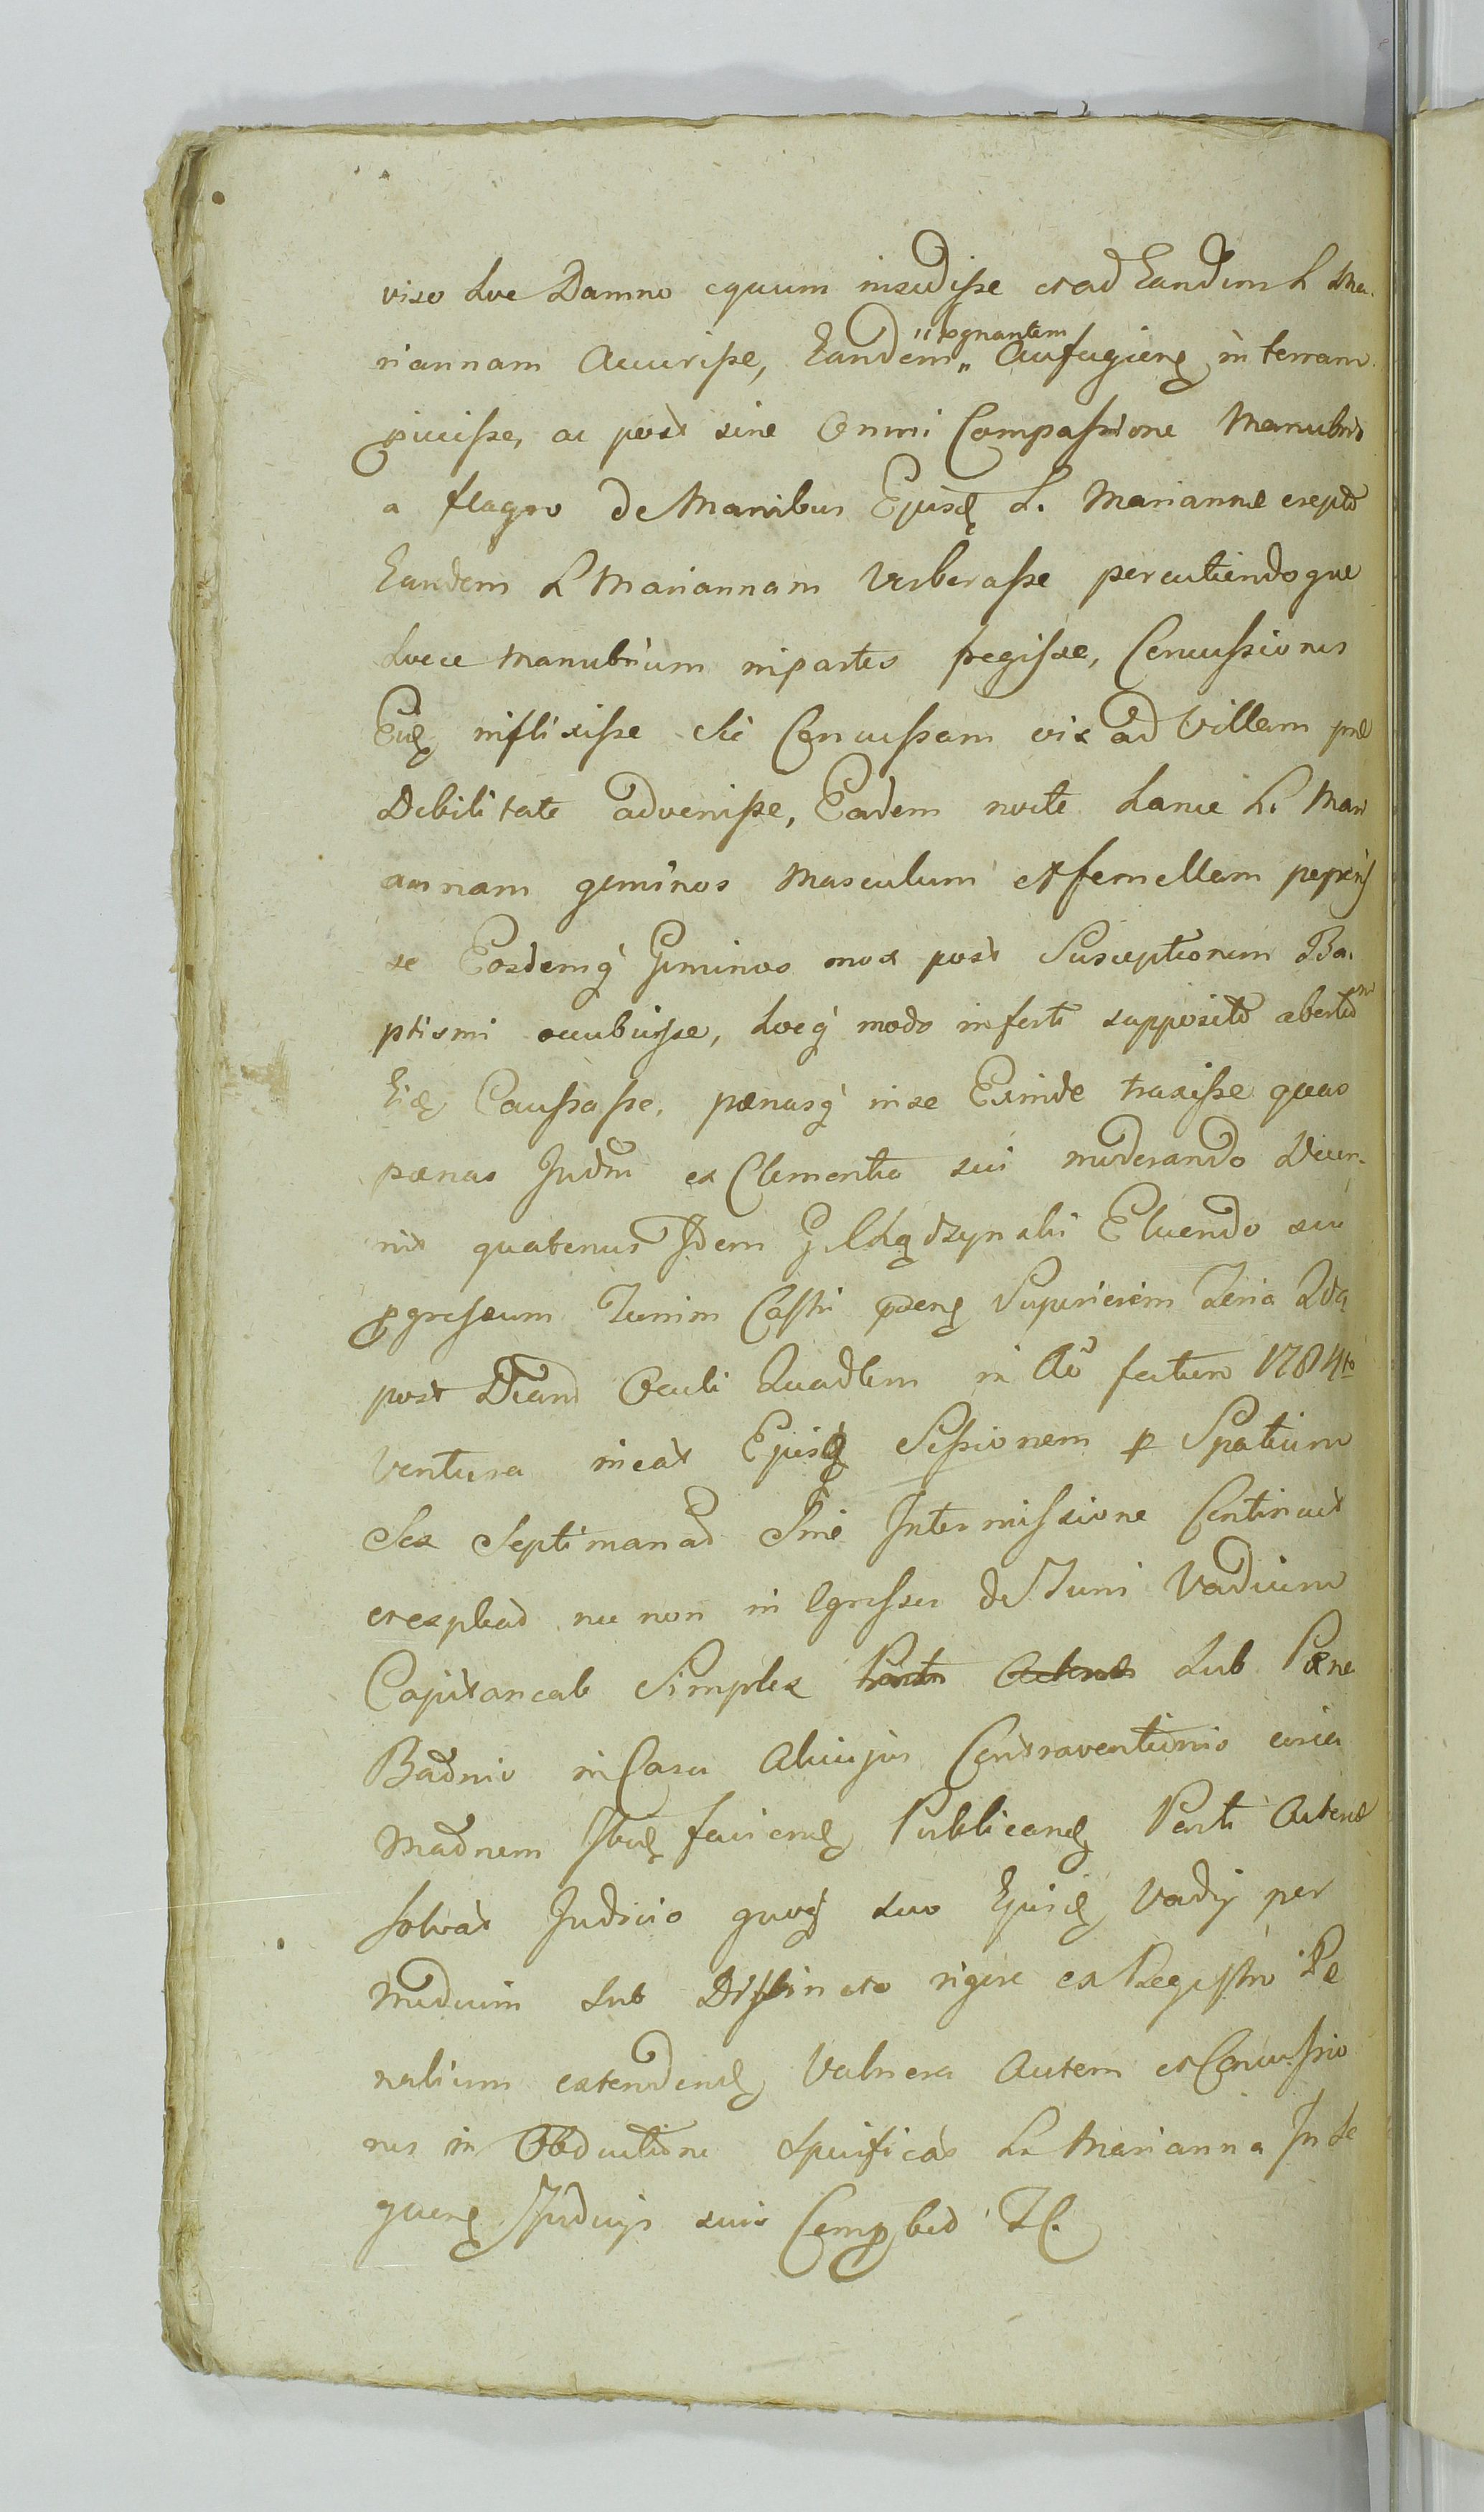 viso hoc Damno equum insedisse et ad Eandem L Ma-
riannam Accurisse, Eandem „ Aufugieng in terram
„ pgnantem
pjecisse, ac post sine Omni Compassione Manubrio
a flagro de Manibus Ejusd L. Mariannæ erepto
Eandem L Mariannam Verberasse percutiendoque
hocce manubrium in partes fregisse, Concussiones
Eid inflixisse sic Concussam vix ad Villam præ
Debilitate advenisse, Eadem nocte hance L. Mari
annam geminos Masculum et femellam peperis
se Eosdemq Geminos mox post Susceptionem Ba-
ptismi occubuisse, hocq modo infesti supposito abortum
Eid Caussasse, pænasq in se Exinde traxisse quas
pænas Judm ex Clementia sui moderando Decer-
nit quatenus Idem G Chądzynski Eluendo sui
pgressum Turrim Castri pdeng Superiorem Feria 2da
post Dcam Oculi Quadlem in Ao fatum 1784to
Ventura ineat Ejusq Sessionem p Spatium
Sex Septimanad Sine Intermissione Continuet
et expleat nec non in Egressu de Turri Vadium
Capitaneale Simplex Parti Actoreæ Sub Pæna
Badnis in Casu Alicujus Contraventionis circa
Madnem Ibid faciend Publicand Parti Actoreæ
solvat Judicio quoq suo Ejusd Vadij per
medium Sub Districto rigore ex Registro Pæ
nalium extendend Vulnera Autem et Concussio
nes in Obductione Specificas La Marianna In Se
queng Judicijs suis Compbed TC.